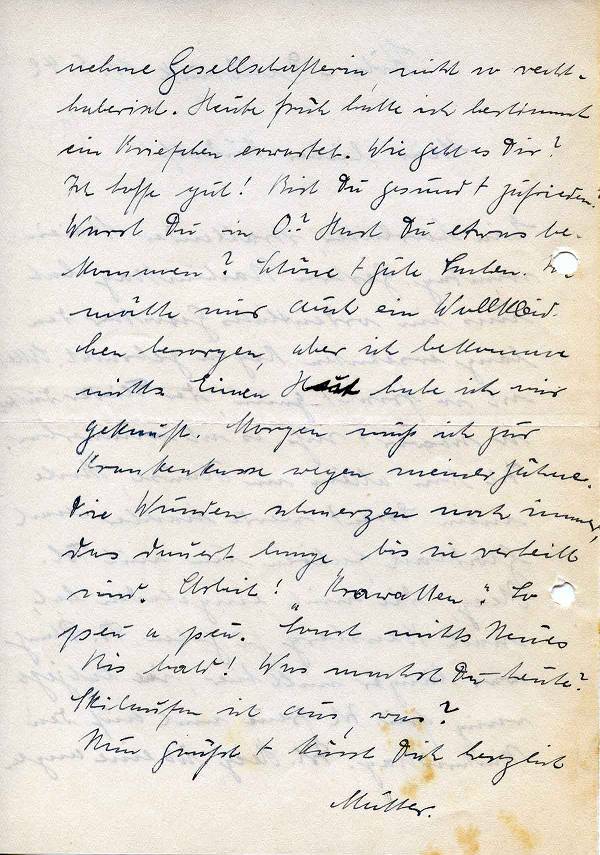 nehme Gesellschafterin, nicht so recht-
haberisch. Heute früh hatte ich bestimmt
ein Briefchen erwartet. Wie geht es Dir?
Ich hoffe gut! Bist Du gesund + zufrieden?
Warst Du in O.? Hast Du etwas be-
kommen? Schöne + gute Sachen. Ich
möchte mir auch ein Wollkleid
chen besorgen, aber ich bekomme
nichts. Einen Hut habe ich mir
gekauft. Morgen muß ich zur
Krankenkasse wegen meiner Zähne.
Die Wunden schmerzen noch immer,
das dauert lange bis sie verheilt
sind. Arbeit! "Krawatten". So
peu a peu. Sonst nichts Neues
Bis bald! Was machst Du heute?
Skilaufen ist aus, was?
Nun grüßt + küsst Dich herzlich
Mutter.